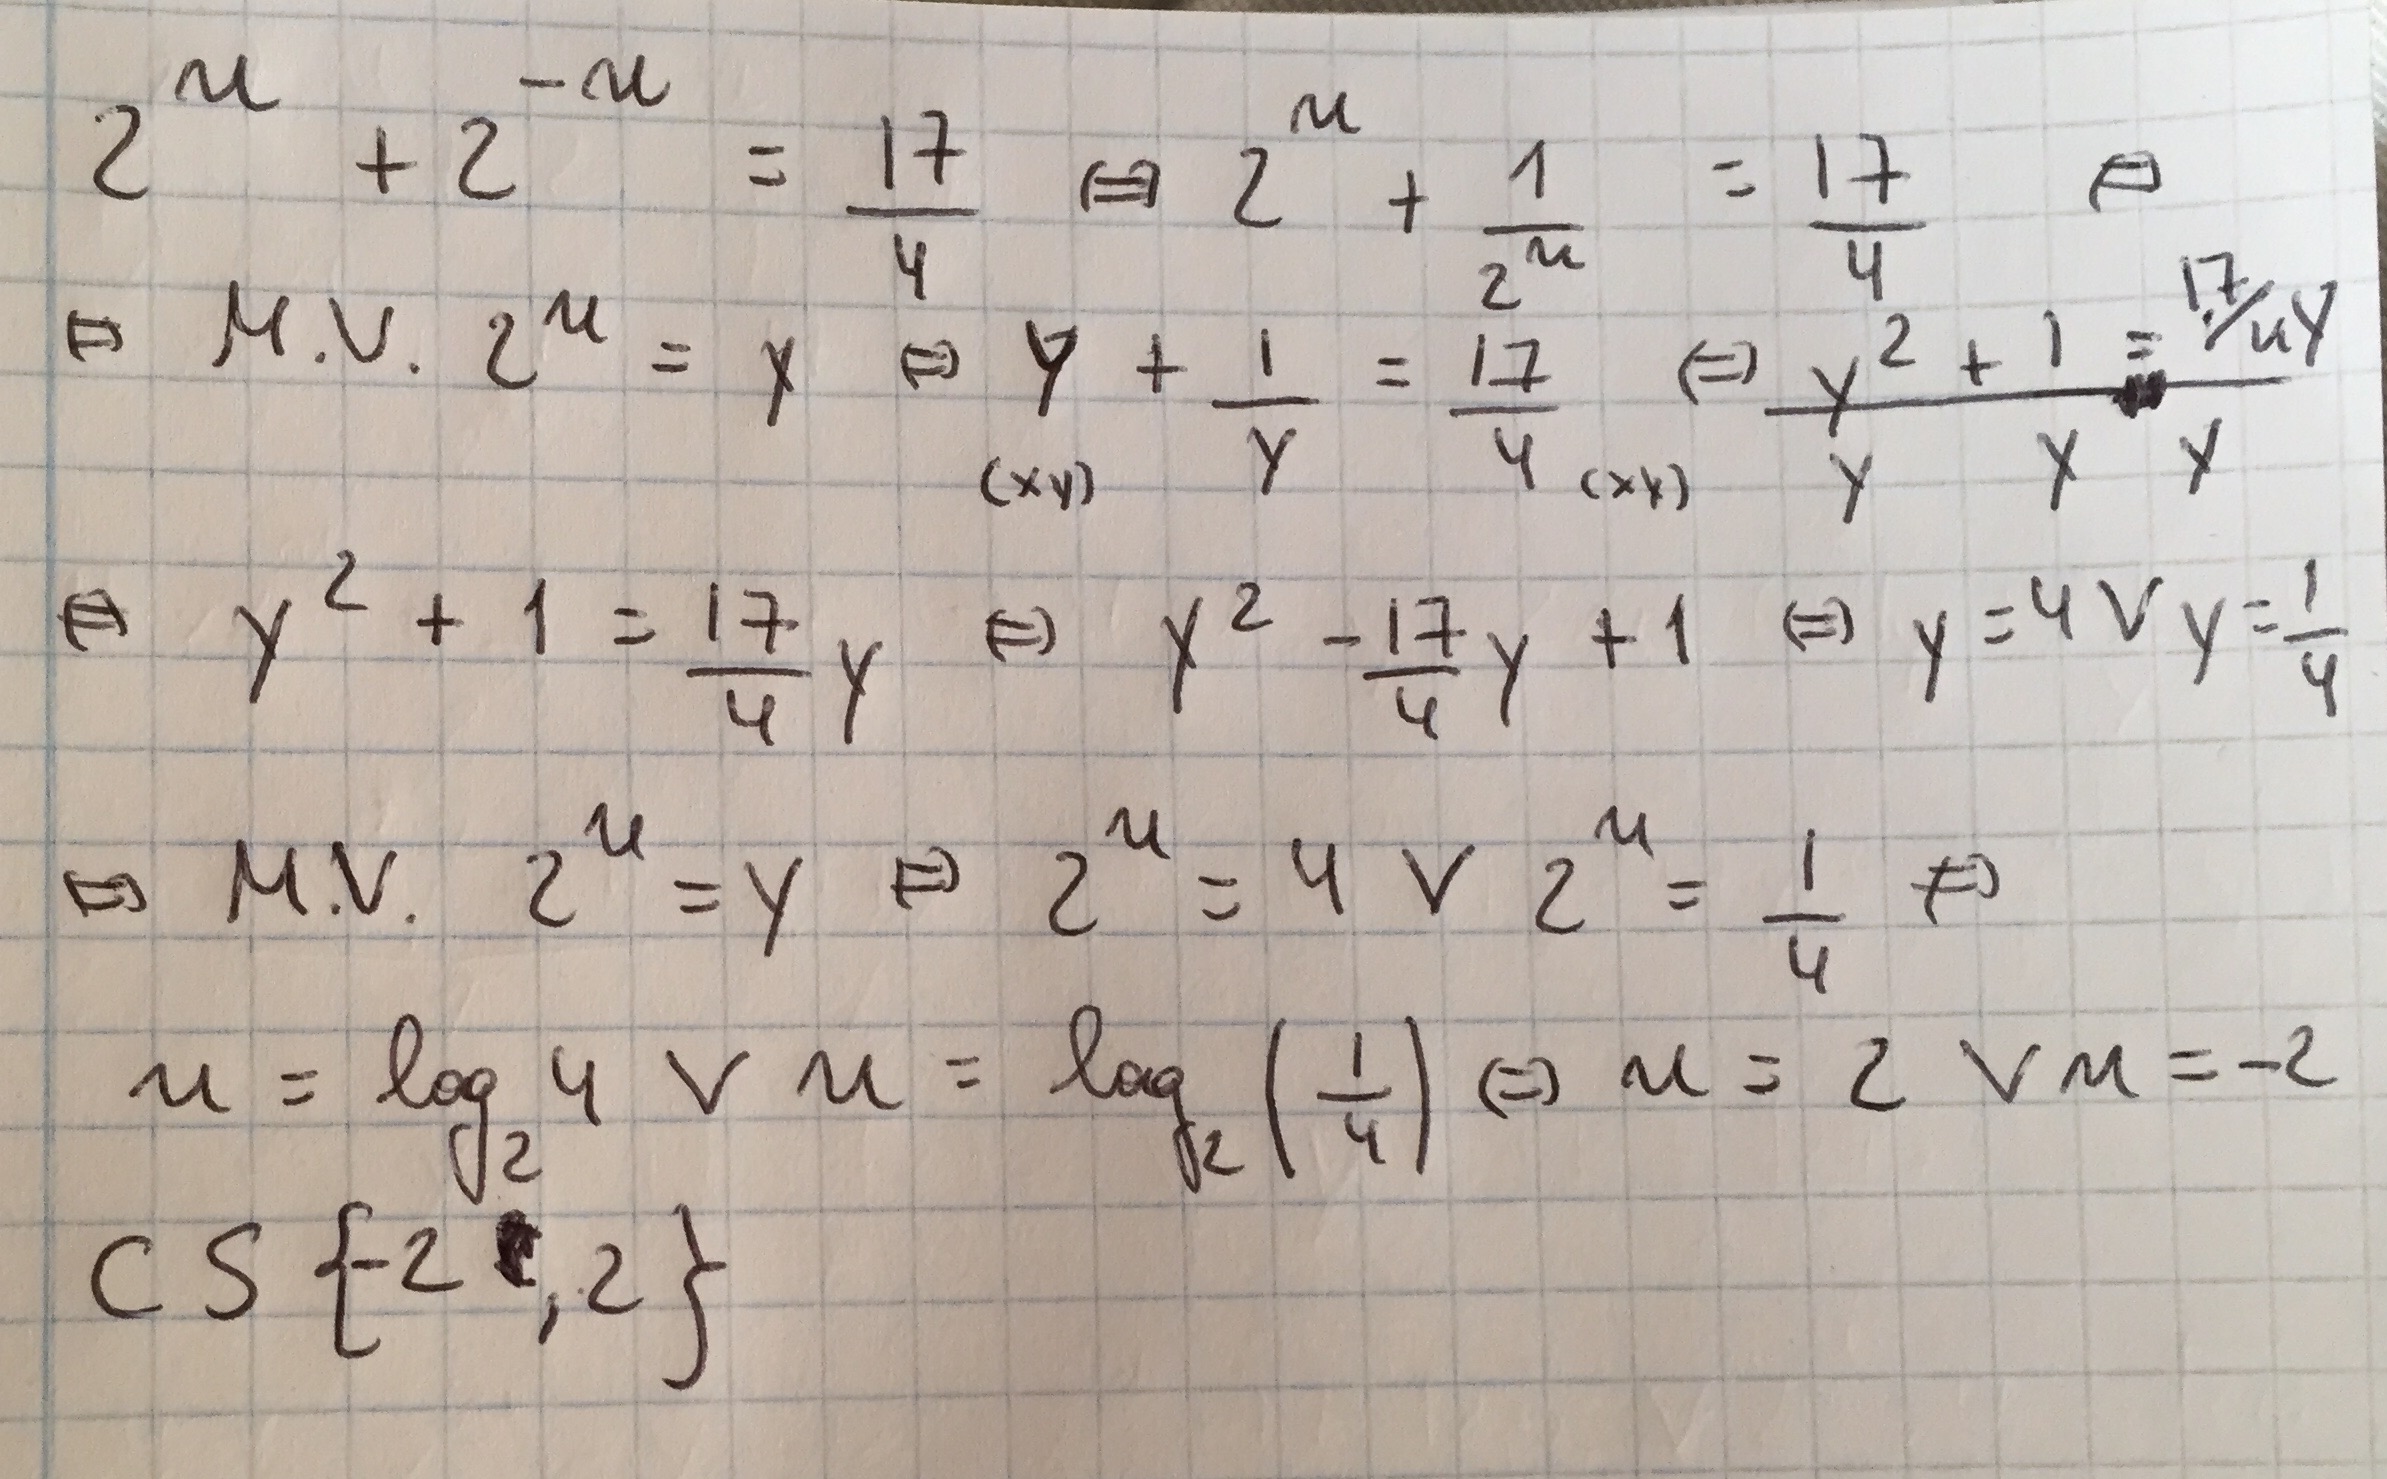 2^x + 2^-x = 17/4 ⇔ 2^x + 1/2^x = 17/4 ⇔
⇔ M.V. 2^x = y ⇔ y + 1/y = 17/4 ⇔ y^2 + 1 = 17/4y
(xy) (xy) y y y
⇔ y^2 + 1 = 17/4 y ⇔ y^2 - 17/4 y + 1 ⇔ y = 4 ∨ y = 1/4
⇔ M.V. 2^x = y ⇔ 2^x = 4 ∨ 2^x = 1/4 ⇔
x = log_2 4 ∨ x = log_2 (1/4) ⇔ x = 2 ∨ x = -2
CS {-2 , 2}